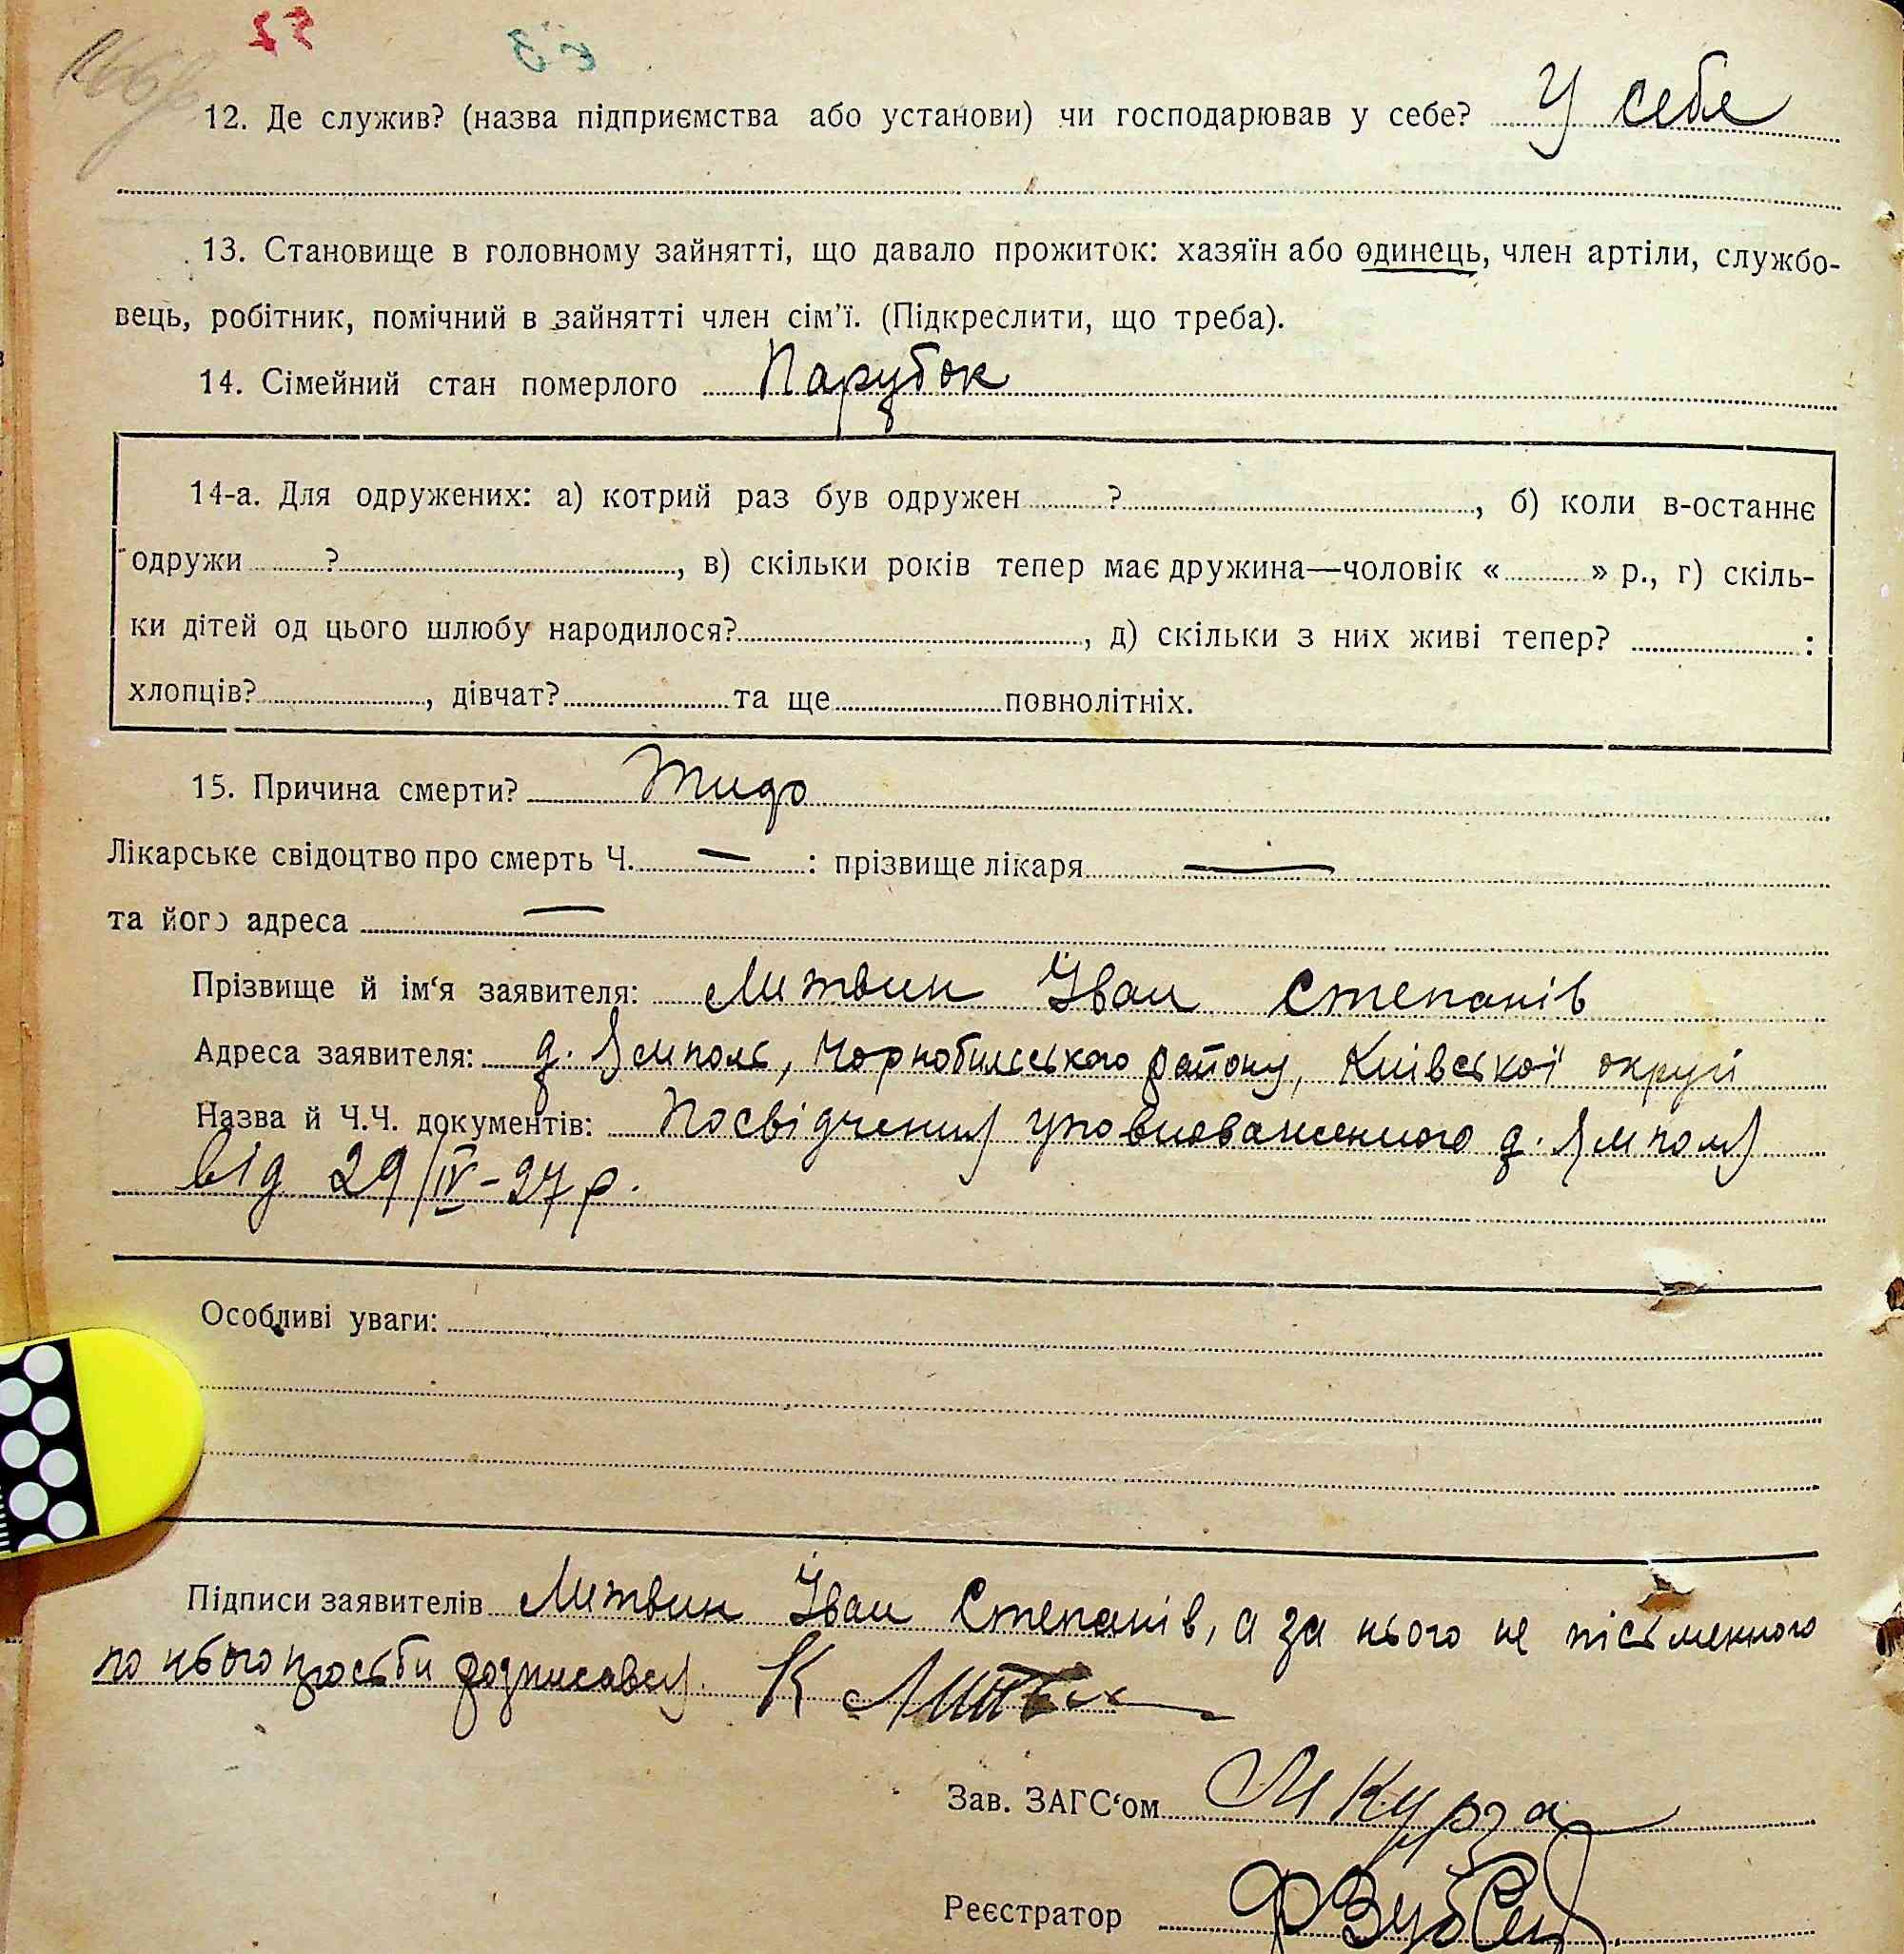 12. Де служив? (назва підприємства або установи) чи господарював у себе? У себе
13. Становище в головному зайнятті, що давало прожиток: хазяїн або одинець, член артіли, службо-
вець, робітник, помічний в зайнятті член сім'ї. (Підкреслити, що треба).
14. Сімейний стан померлого Парубок
14-а. Для одружених: а) котрий раз був одружен ? , б) коли в-останнє
одружи ? , в) скільки років тепер має дружина—чоловік « » р., г) скіль-
ки дітей од цього шлюбу народилося? , д) скільки з них живі тепер? :
хлопців? , дівчат? та ще повнолітніх.
15. Причина смерти?
Лікарське свідоцтво про смерть Ч. — : прізвище лікаря —
та його адреса —
Прізвище й ім'я заявителя: Литвин Іван Степанів
Адреса заявителя: д. Ямполь, Чорнобильського району, Київської округи
Назва й Ч.Ч. документів: Посвідчення уповноваженного д. Ямполя
від 29/IV-27 р.
Особливі уваги:
Підписи заявителів Литвин Іван Степанів, а за нього не письменного
по нього просьби подписався К Литвин
Зав. ЗАГС'ом
Реєстратор